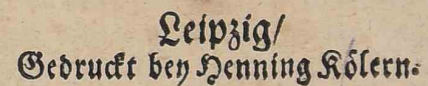 Leipzig/
Gedruckt bey Henning Kölern.